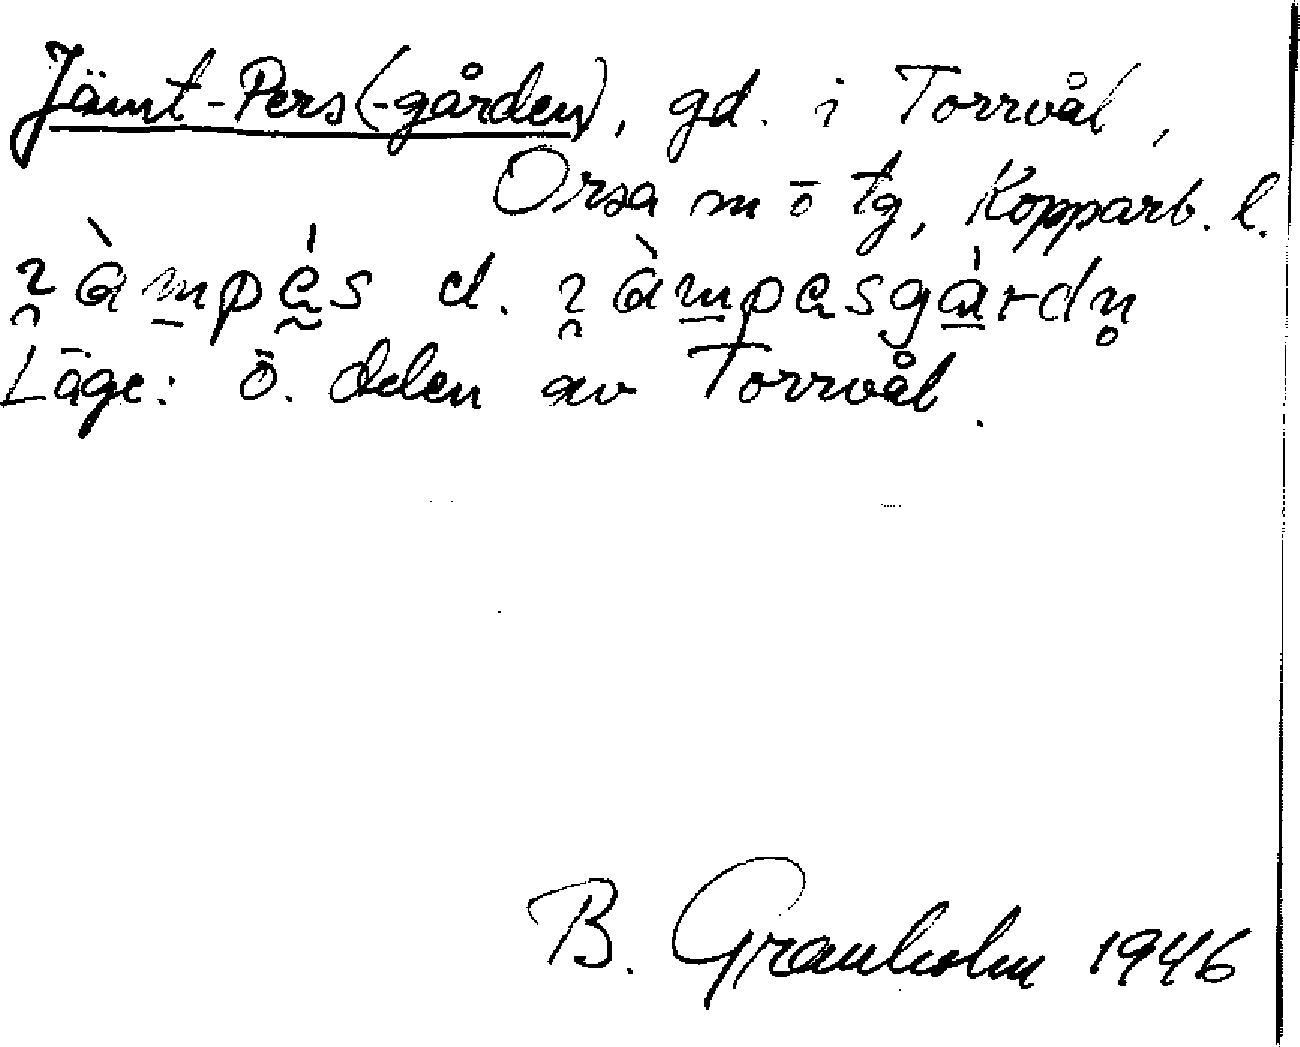 Jämt-Pers(-gården), gd. i Torrvål,
Orsa sn o tg, Kopparb. l.
d.
Läge: ö. delen av Torrvål.
B. Granholm 1946